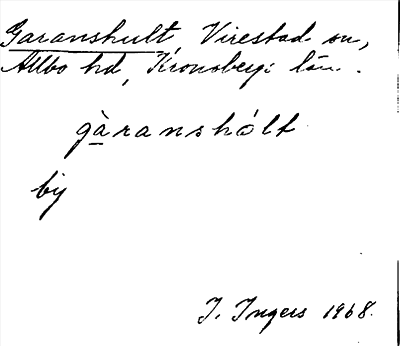 Garanshult Virestad sn,
Allbo hd, Kronobergs län.
gàranshólt
by
I. Ingers 1968.